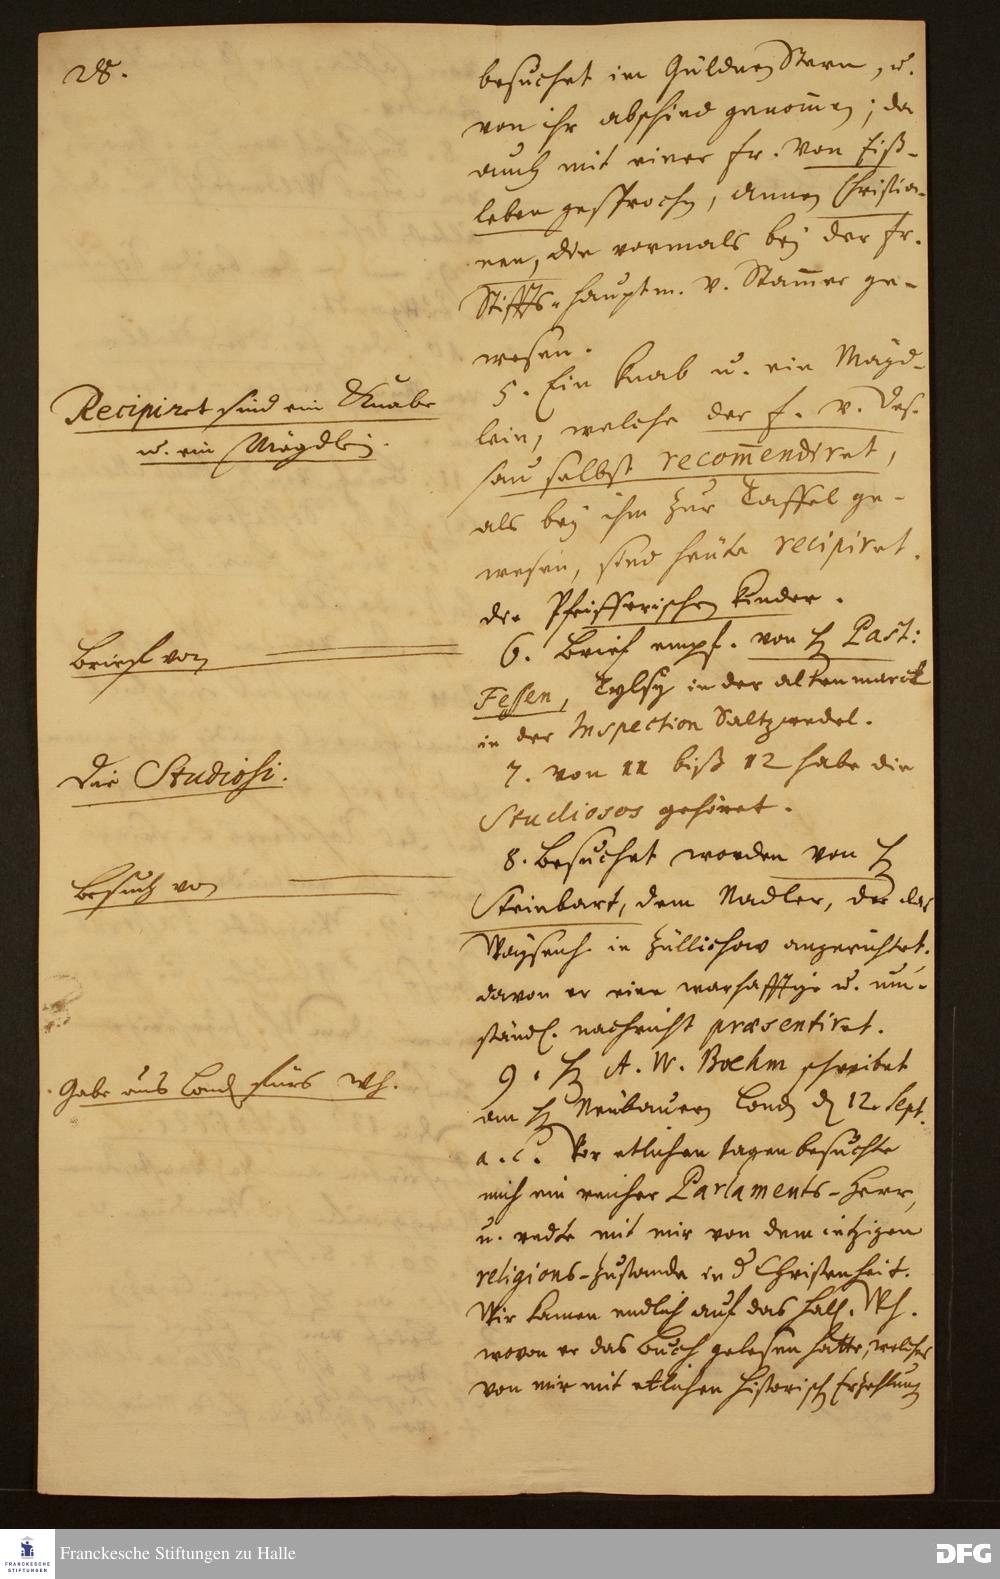 28.
besuchet im Gülden Stern, u.
von ihr abschied genom̅en; da
auch mit einer Fr. von Eiß-
leben gesprochen, Annen Christia-
nen, die vormals bey der Fr.
Stiffts-Hauptm. v. Stam̅er ge-
wesen.
Recipiret sind ein Knabe
u. ein Mägdlein.
5. Ein Knab u. ein Mägd-
lein, welche der F. v. Des-
sau selbst recom̅endiret,
als bey ihm zur Taffel ge-
wesen, sind heute recipiret.
die Pfeifferischen Kinder.
Brief von
6. Brief empf. von H Past:
Fessen, Tylsen in der alten marck
in der Inspection Saltzwedel.
Die Studiosi.
7. Von 11 biß 12 habe die
Studiosos gehöret.
Besuch von
8. Besuchet worden von H
Steinbart, dem Nadler, der das
Waysenh. in Züllichow angerichtet.
davon er eine warhafftige u. um-
ständl. nachricht præsentiret.
Gabe aus Lond. fürs Wh.
9. H A. W. Boehm schreibet
an H Neubauern Lond. d 12. Sept.
a. c. Vor etlichen tagen besuchte
mich ein reicher Parlaments-Herr,
u. redete mit mir von dem ietzigen
religions-Zustande in d Christenheit.
Wir kamen endlich auf das Hall. Wh.
wovon er das Buch gelesen hatte, welches
von mir mit etlichen Historisch Erzehlung
Franckesche Stiftungen zu Halle
FRANCKESCHE
STIFTUNGEN
DFG